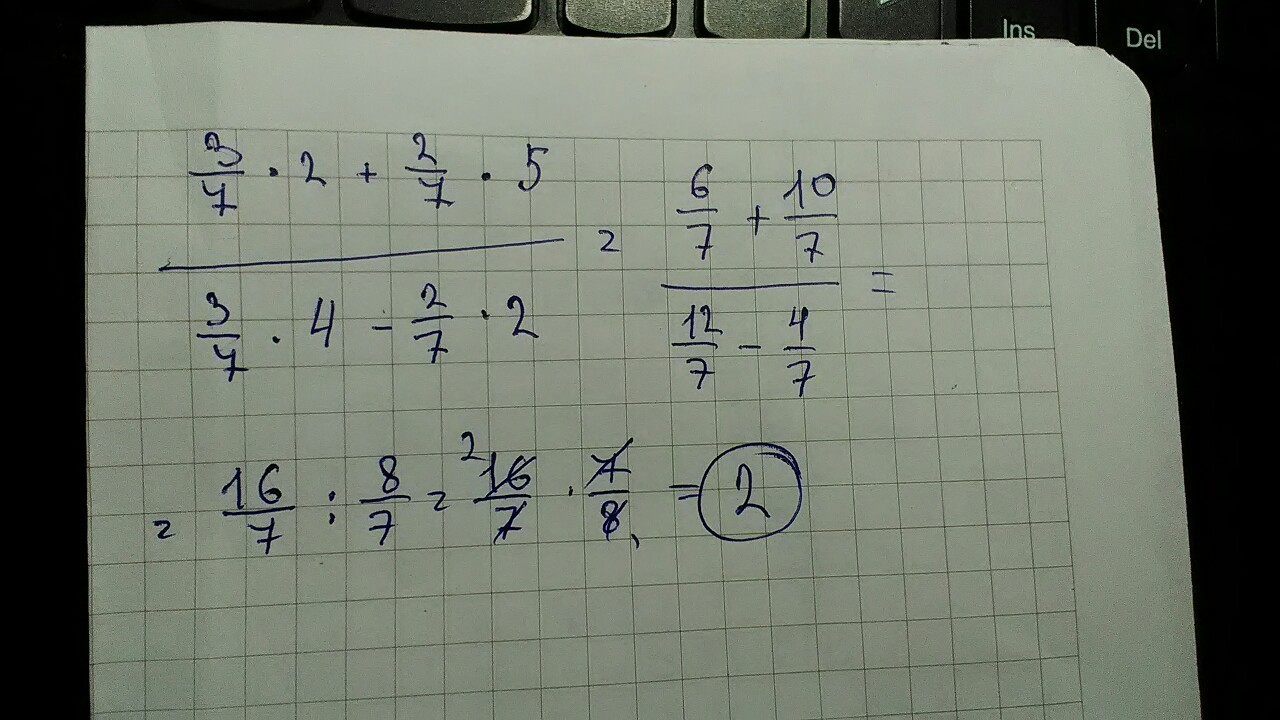 Ins Del
(3/7 · 2 + 2/7 · 5) / (3/7 · 4 - 2/7 · 2) = (6/7 + 10/7) / (12/7 - 4/7) =
= 16/7 : 8/7 = ²16/7 · 7/8₁ = 2